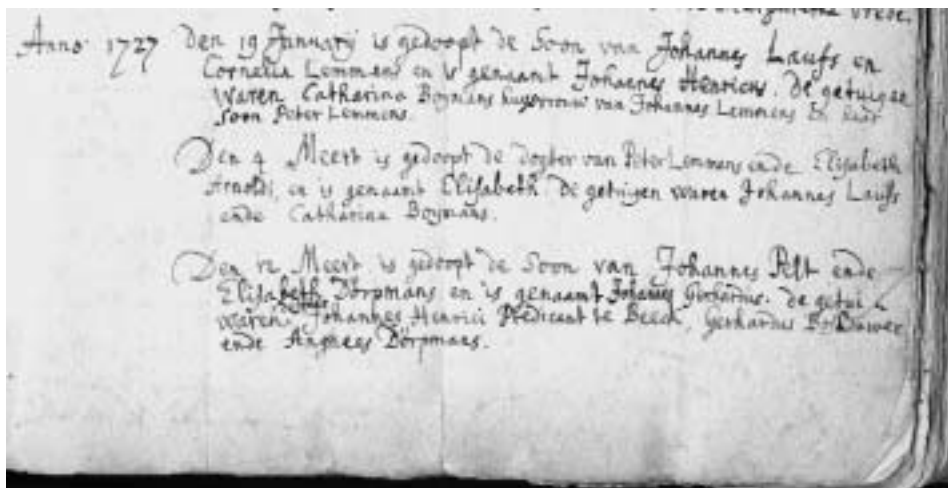 vrede.
Anno 1727 den 19 January is gedoopt de Soon van Johannes Laufs en
Cornelia Lemmens en is genaamt Johannes Henricus. de getuigen
waren Catharina Boymans huysvrouw van Johannes Lemmens haar
Soon Peter Lemmens.
Den 4 Meert is gedoopt de dogter van Peter Lemmens ende Elisabeth
Arnoldi, en is genaamt Elisabeth, de getuigen waren Johannes Laufs
ende Catharina Boymans.
Den 12 Meert is gedoopt de Soon van Johannes Pelt ende
Elisabeth Dörpmans en is genaamt Johannes Gerhardus. de getui
waren Johannes Henrici Predicant te Beeck, Gerhardus
ende Dörpmans.